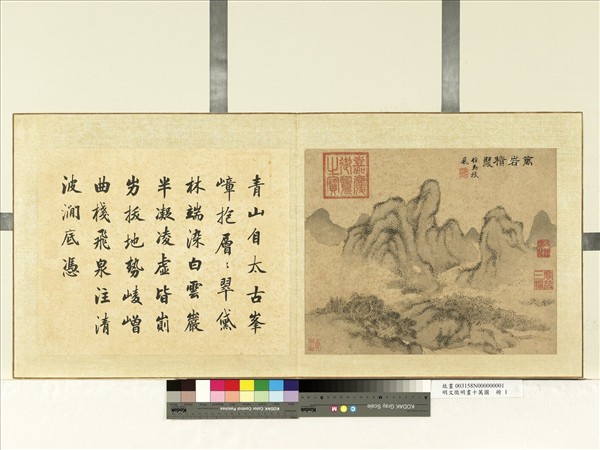 萬岩積翠
嘉慶
御覽
之寶
青山自太古峯
嶂抱層〻翠黛
林端染白雲巖
半凝凌虛皆崱
屴拔地勢崚嶒
曲棧飛泉注清
波澗底憑
KODAK Color Control Patches
KODAK Gray Scale
故畫 003158N000000001
明文徵明畫十萬圖 冊 1